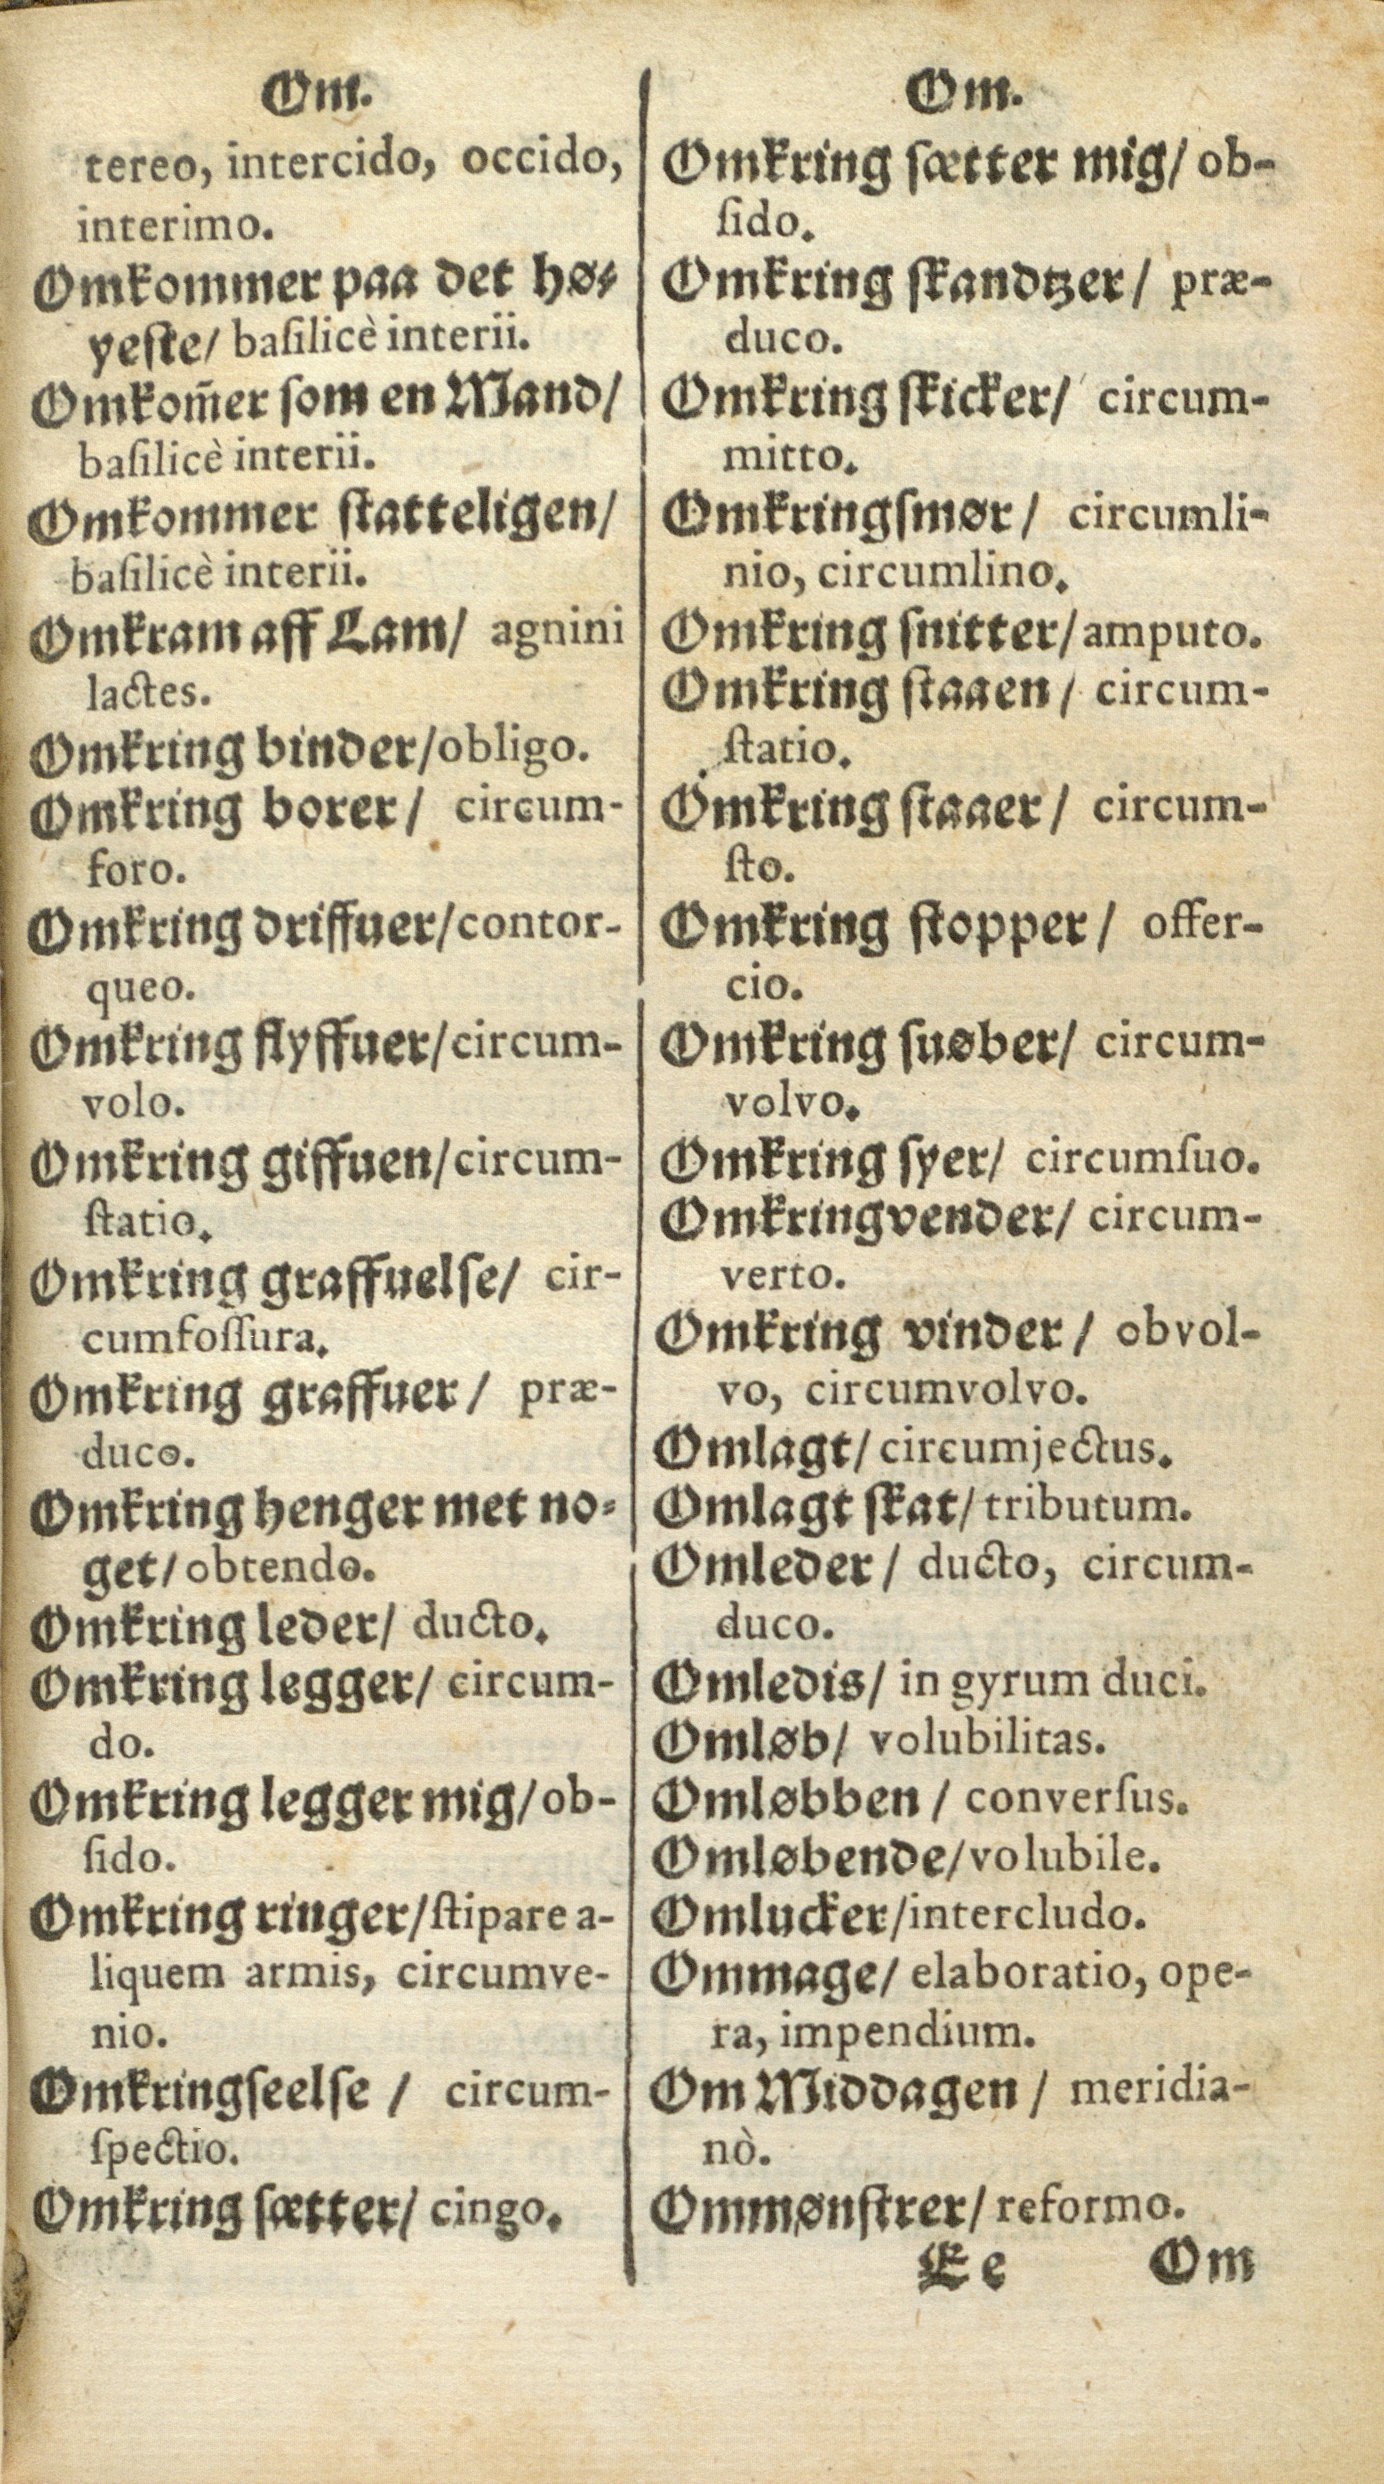 Om.
tereo, intercido, occido,
interimo.
Omkommer paa det hø-
yeſte/ baſilicè interii.
Omkom̃er ſom en Mand/
baſilicè interii.
Omkommer ſtatteligen/
baſilicè interii.
Omkram aff Lam/ agnini
lactes.
Omkring binder/obligo.
Omkring borer/ circum-
foro.
Omkring driffuer/contor-
queo.
Omkring flyffuer/circum-
volo.
Omkring giffuen/circum-
ſtatio.
Omkring graffuelſe/ cir-
cumfoſſura.
Omkring graffuer/ præ-
duco.
Omkring henger met no-
get/obtendo.
Omkring leder/ ducto.
Omkring legger/ circum-
do.
Omkring legger mig/ob-
ſido.
Omkring ringer/ſtipare a-
liquem armis, circumve-
nio.
Omkringſeelſe/ circum-
ſpectio.
Omkring ſætter/ cingo.
Om.
Omkring ſætter mig/ ob-
ſido.
Omkring ſkandtzer/ præ-
duco.
Omkring ſkicker/ circum-
mitto.
Omkringſmør/ circumli-
nio, circumlino.
Omkring ſnitter/amputo.
Omkring ſtaaen/ circum-
ſtatio.
Omkring ſtaaer/ circum-
ſto.
Omkring ſtopper/ offer-
cio.
Omkring ſuøber/ circum-
volvo.
Omkring ſyer/ circumſuo.
Omkringvender/ circum-
verto.
Omkring vinder/ obvol-
vo, circumvolvo.
Omlagt/circumjectus.
Omlagt ſkat/tributum.
Omleder/ ducto, circum-
duco.
Omledis/ in gyrum duci.
Omløb/ volubilitas.
Omløbben/ converſus.
Omløbende/volubile.
Omlucker/intercludo.
Ommage/ elaboratio, ope-
ra, impendium.
Om Middagen/ meridia-
nò.
Ommønſtrer/reformo.
Ee Om